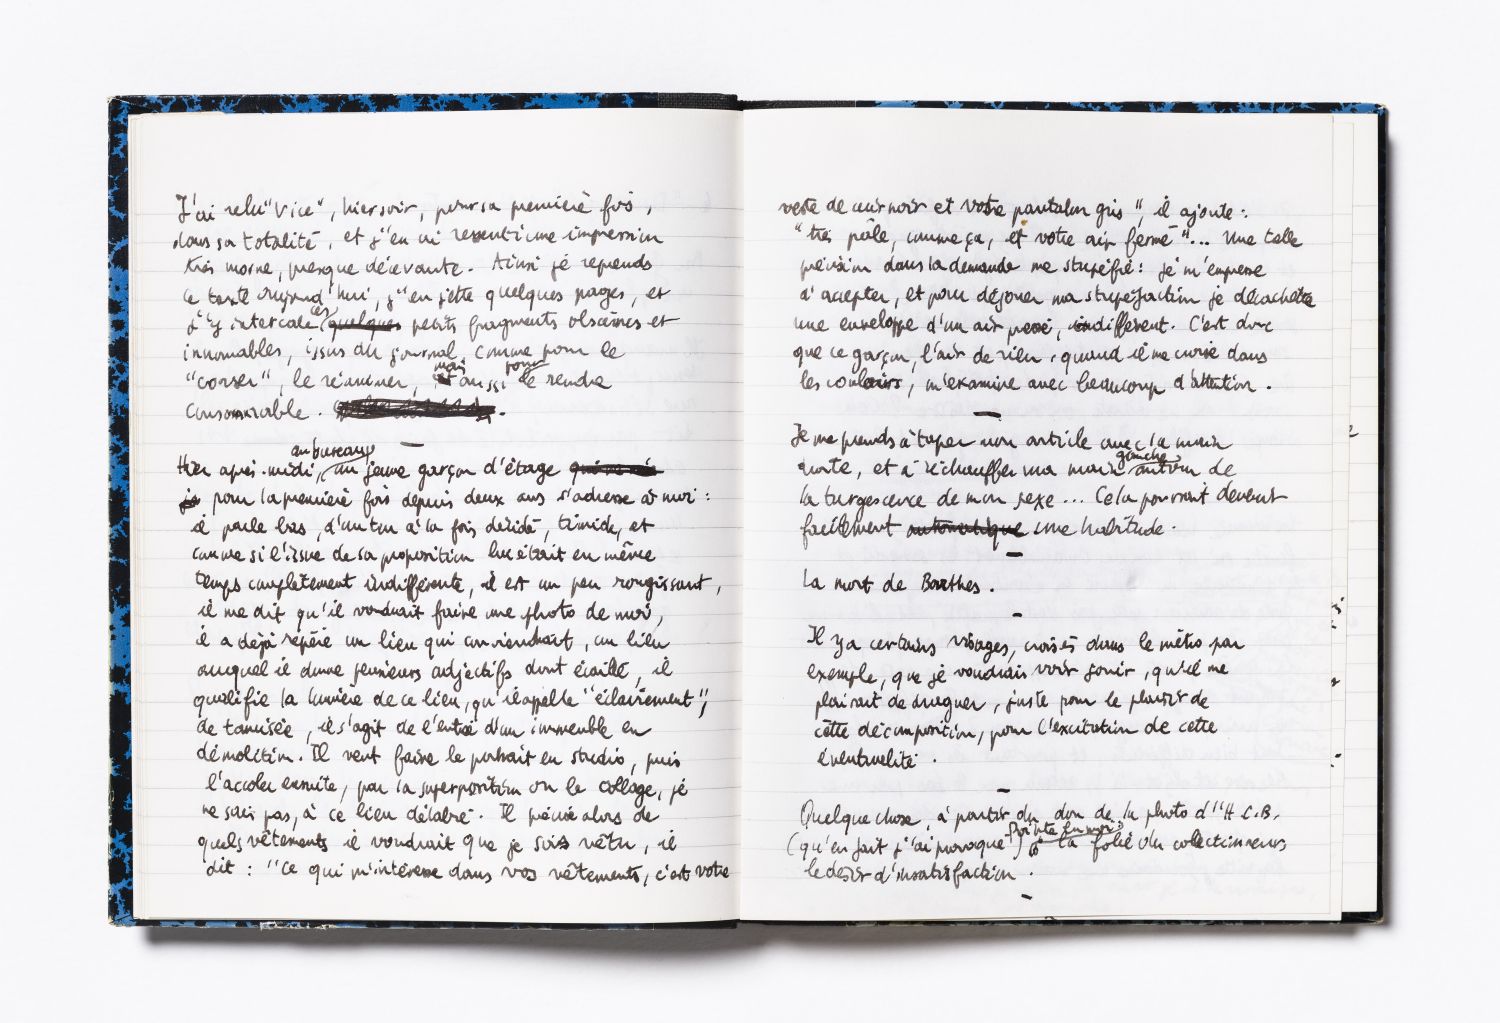 J'ai relu "Vice", hier soir, pour sa première fois,
dans sa totalité, et j'en ai ressenti une impression
très morne, presque décevante. Ainsi je reprends
ce texte aujourd'hui, j'en jette quelques pages, et
j'y intercale ces quelques petits fragments obscènes et
innomables, issus du journal, comme pour le
"corser", le réanimer, mais aussi pour le rendre
consommable.
Hier après-midi, au bureau, un jeune garçon d'étage
pour la première fois depuis deux ans s'adresse à moi :
il parle bas, d'un ton à la fois décidé, timide, et
comme si l'issue de sa proposition lui était en même
temps complètement indifférente, il est un peu rougissant,
il me dit qu'il voudrait faire une photo de moi,
il a déjà repéré un lieu qui conviendrait, un lieu
auquel il donne plusieurs adjectifs dont écaillé, il
qualifie la lumière de ce lieu, qu'il appelle "éclairement",
de tamisée, il s'agit de l'entrée d'un immeuble en
démolition. Il veut faire le portrait en studio, puis
l'accoler ensuite, par la superposition ou le collage, je
ne sais pas, à ce lieu délabré. Il précise alors de
quels vêtements il voudrait que je sois vêtu, il
dit : "Ce qui m'intéresse dans vos vêtements, c'est votre
veste de cuir noir et votre pantalon gris", il ajoute :
"très pâle, comme ça, et votre air fermé"... Une telle
précision dans la demande me stupéfie : je m'empresse
d'accepter, et pour déjouer ma stupéfaction je décachète
une enveloppe d'un air pressé, indifférent. C'est donc
que ce garçon, l'air de rien, quand il me croise dans
les couloirs, m'examine avec beaucoup d'attention.
Je me prends à taper mon article avec la main
droite, et à réchauffer ma main gauche autour de
la turgescence de mon sexe... Cela pourrait devenir
facilement automatique une habitude.
La mort de Barthes.
Il y a certains visages, croisés dans le métro par
exemple, que je voudrais voir jouir, qu'il me
plairait de draguer, juste pour le plaisir de
cette décomposition, pour l'excitation de cette
éventualité.
Quelque chose, à partir du don de la photo d'"H.C.B.
(qu'en fait j'ai provoqué) la folie du collectionneur,
le désir d'insatisfaction.